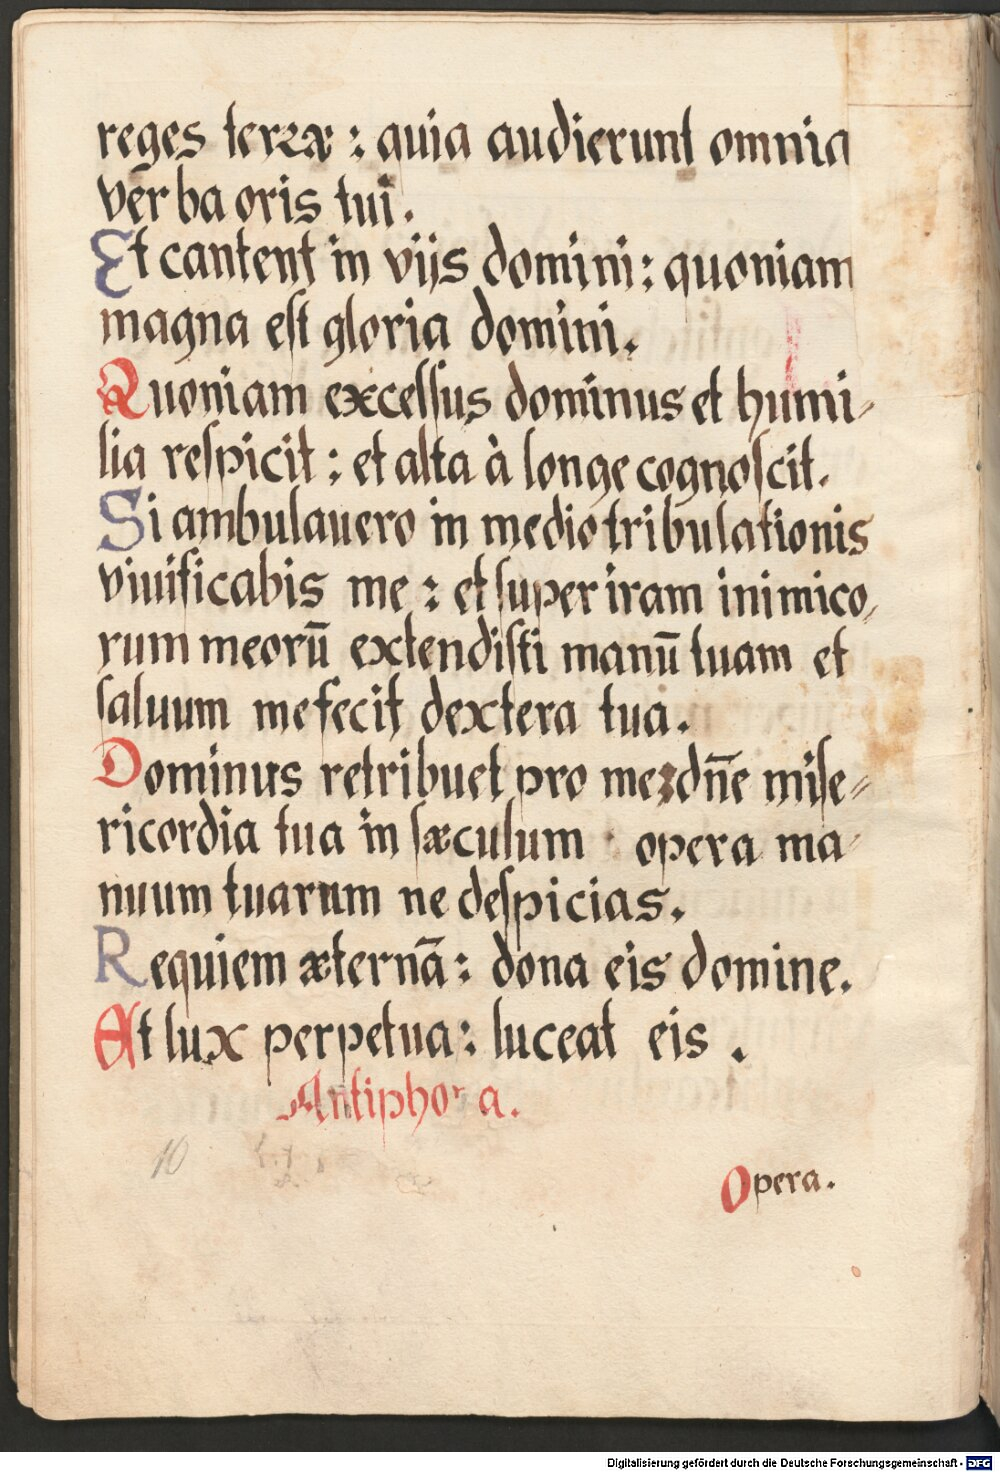 reges terræ : quia audierunt omnia
verba oris tui.
Et cantent in vijs domini : quoniam
magna est gloria domini.
Quoniam excelsus dominus et humi-
lia respicit : et alta à longe cognoscit.
Si ambulauero in medio tribulationis
viuificabis me : et super iram inimico-
rum meorū extendisti manū tuam et
saluum me fecit dextera tua.
Dominus retribuet pro me : dñe mise-
ricordia tua in sæculum opera ma-
nuum tuarum ne despicias.
Requiem æternā : dona eis domine.
Et lux perpetua : luceat eis .
Antiphona.
10
Opera.
Digitalisierung gefördert durch die Deutsche Forschungsgemeinschaft - DFG